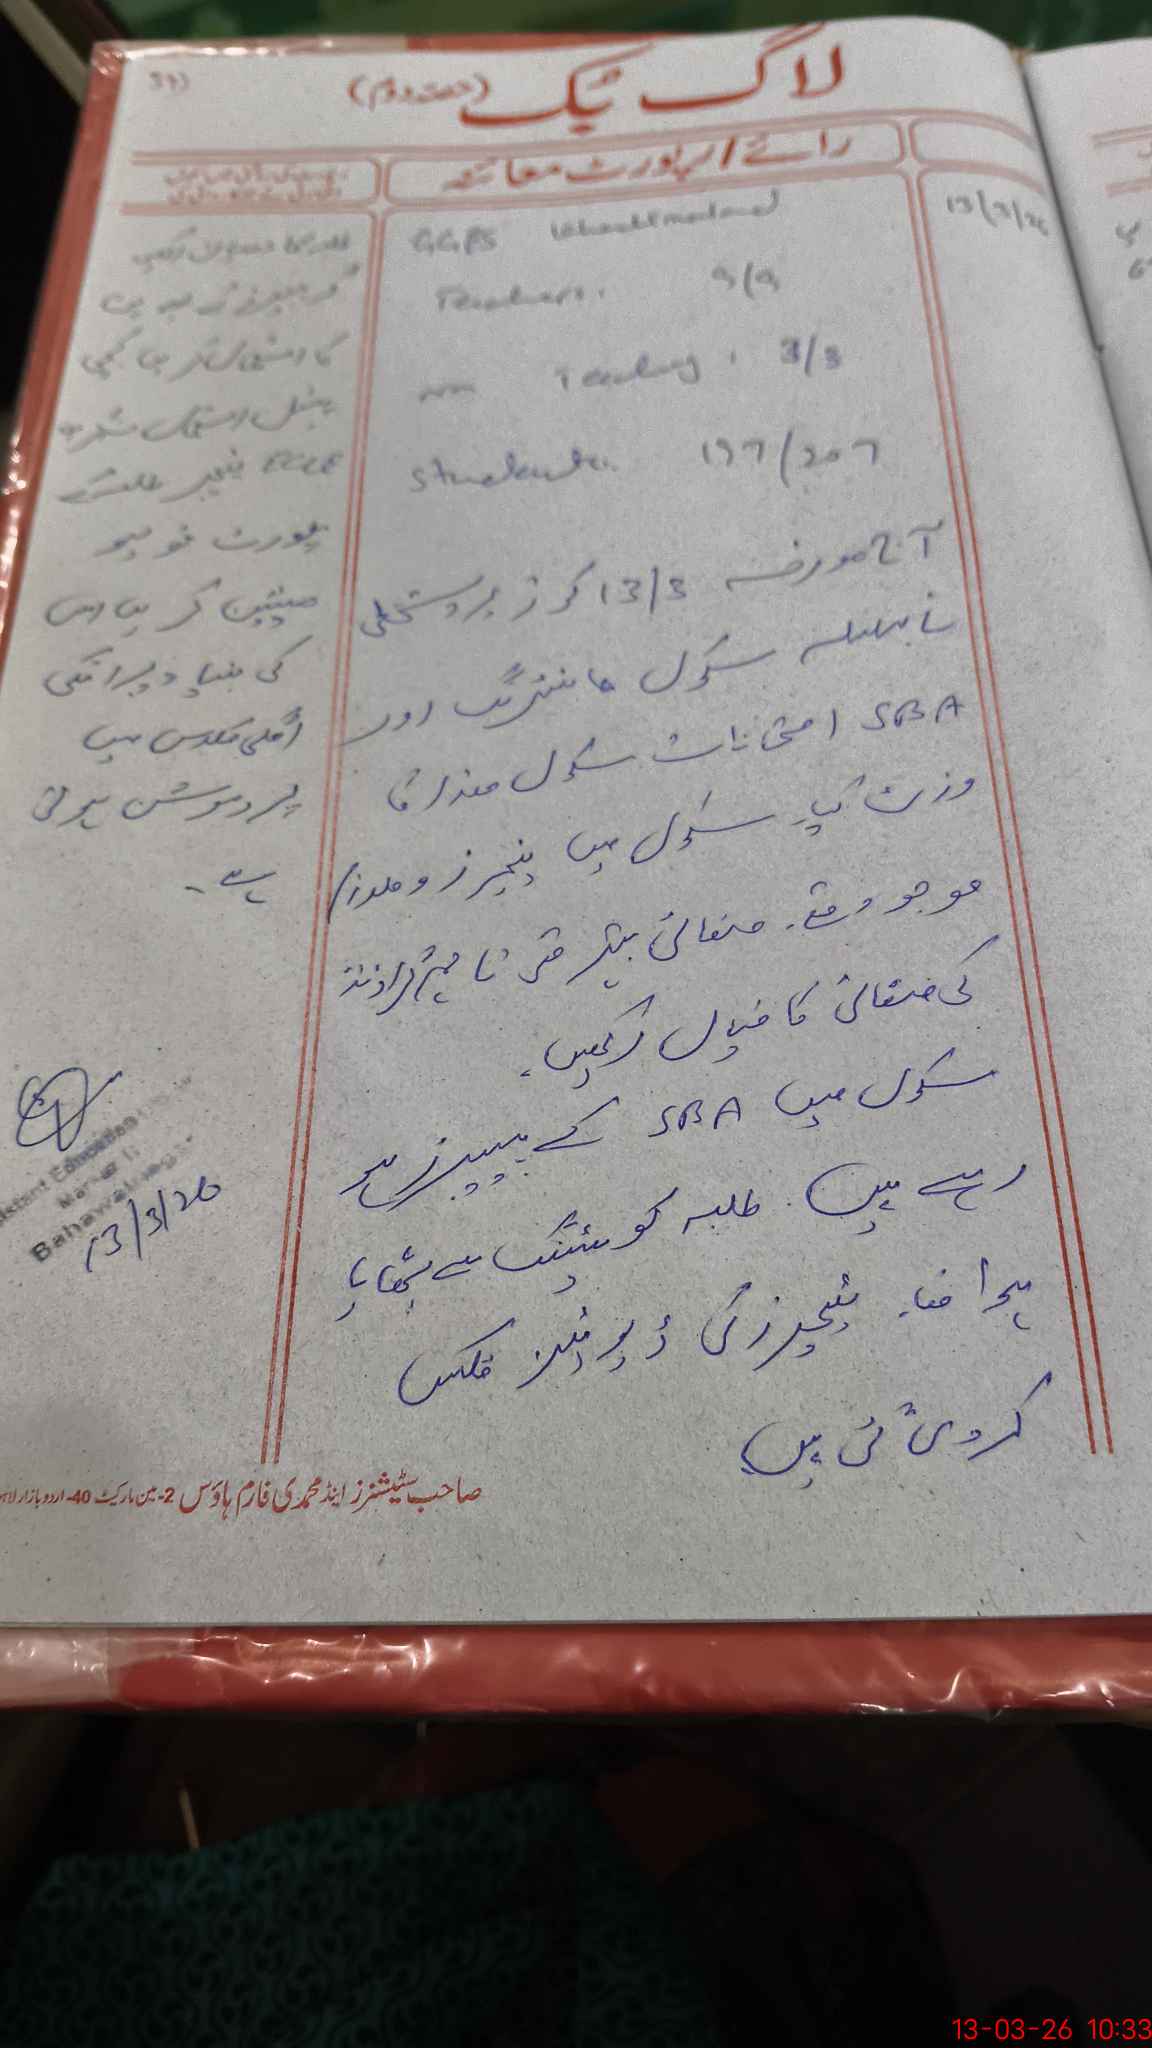 لاگ بک (حصہ دوم)
رائے / رپورٹ معائنہ
13/3/26
GGPS
Teachers. 9/9
non Teaching. 3/3
Students. 197/207
آج مورخہ 13/3 کو زیر دستخطی
نے بسلسلہ سکول مانیٹرنگ اور
SBA امتحانات سکول ھذا کا
وزٹ کیا۔ سکول میں ٹیچرز و ملازم
موجود تھے۔ صفائی بہتر تھی تا ہم گراونڈ
کی صفائی کا خیال رکھیں۔
سکول میں SBA کے پیپرز ہو
رہے ہیں۔ طلبہ کو سٹنگ سے بٹھایا
ہوا تھا۔ ٹیچرز کی ڈیوٹیز فکس
کر دی گئی ہیں
کا استعمال کریں کچی
پنسل استعمال نہ کریں
ECCE ٹیچر
پورٹ فولیو
مینٹین کریں اس
کی بنیاد پر انکی
اگلی کلاس میں
پروموشن ہونی
ہے۔
Assistant Education
Bahawalnagar
13/3/26
صاحب سٹیشنرز اینڈ محمدی فارم ہاؤس 2-مین مارکیٹ 40-اردو بازار لاہور
13-03-26 10:33